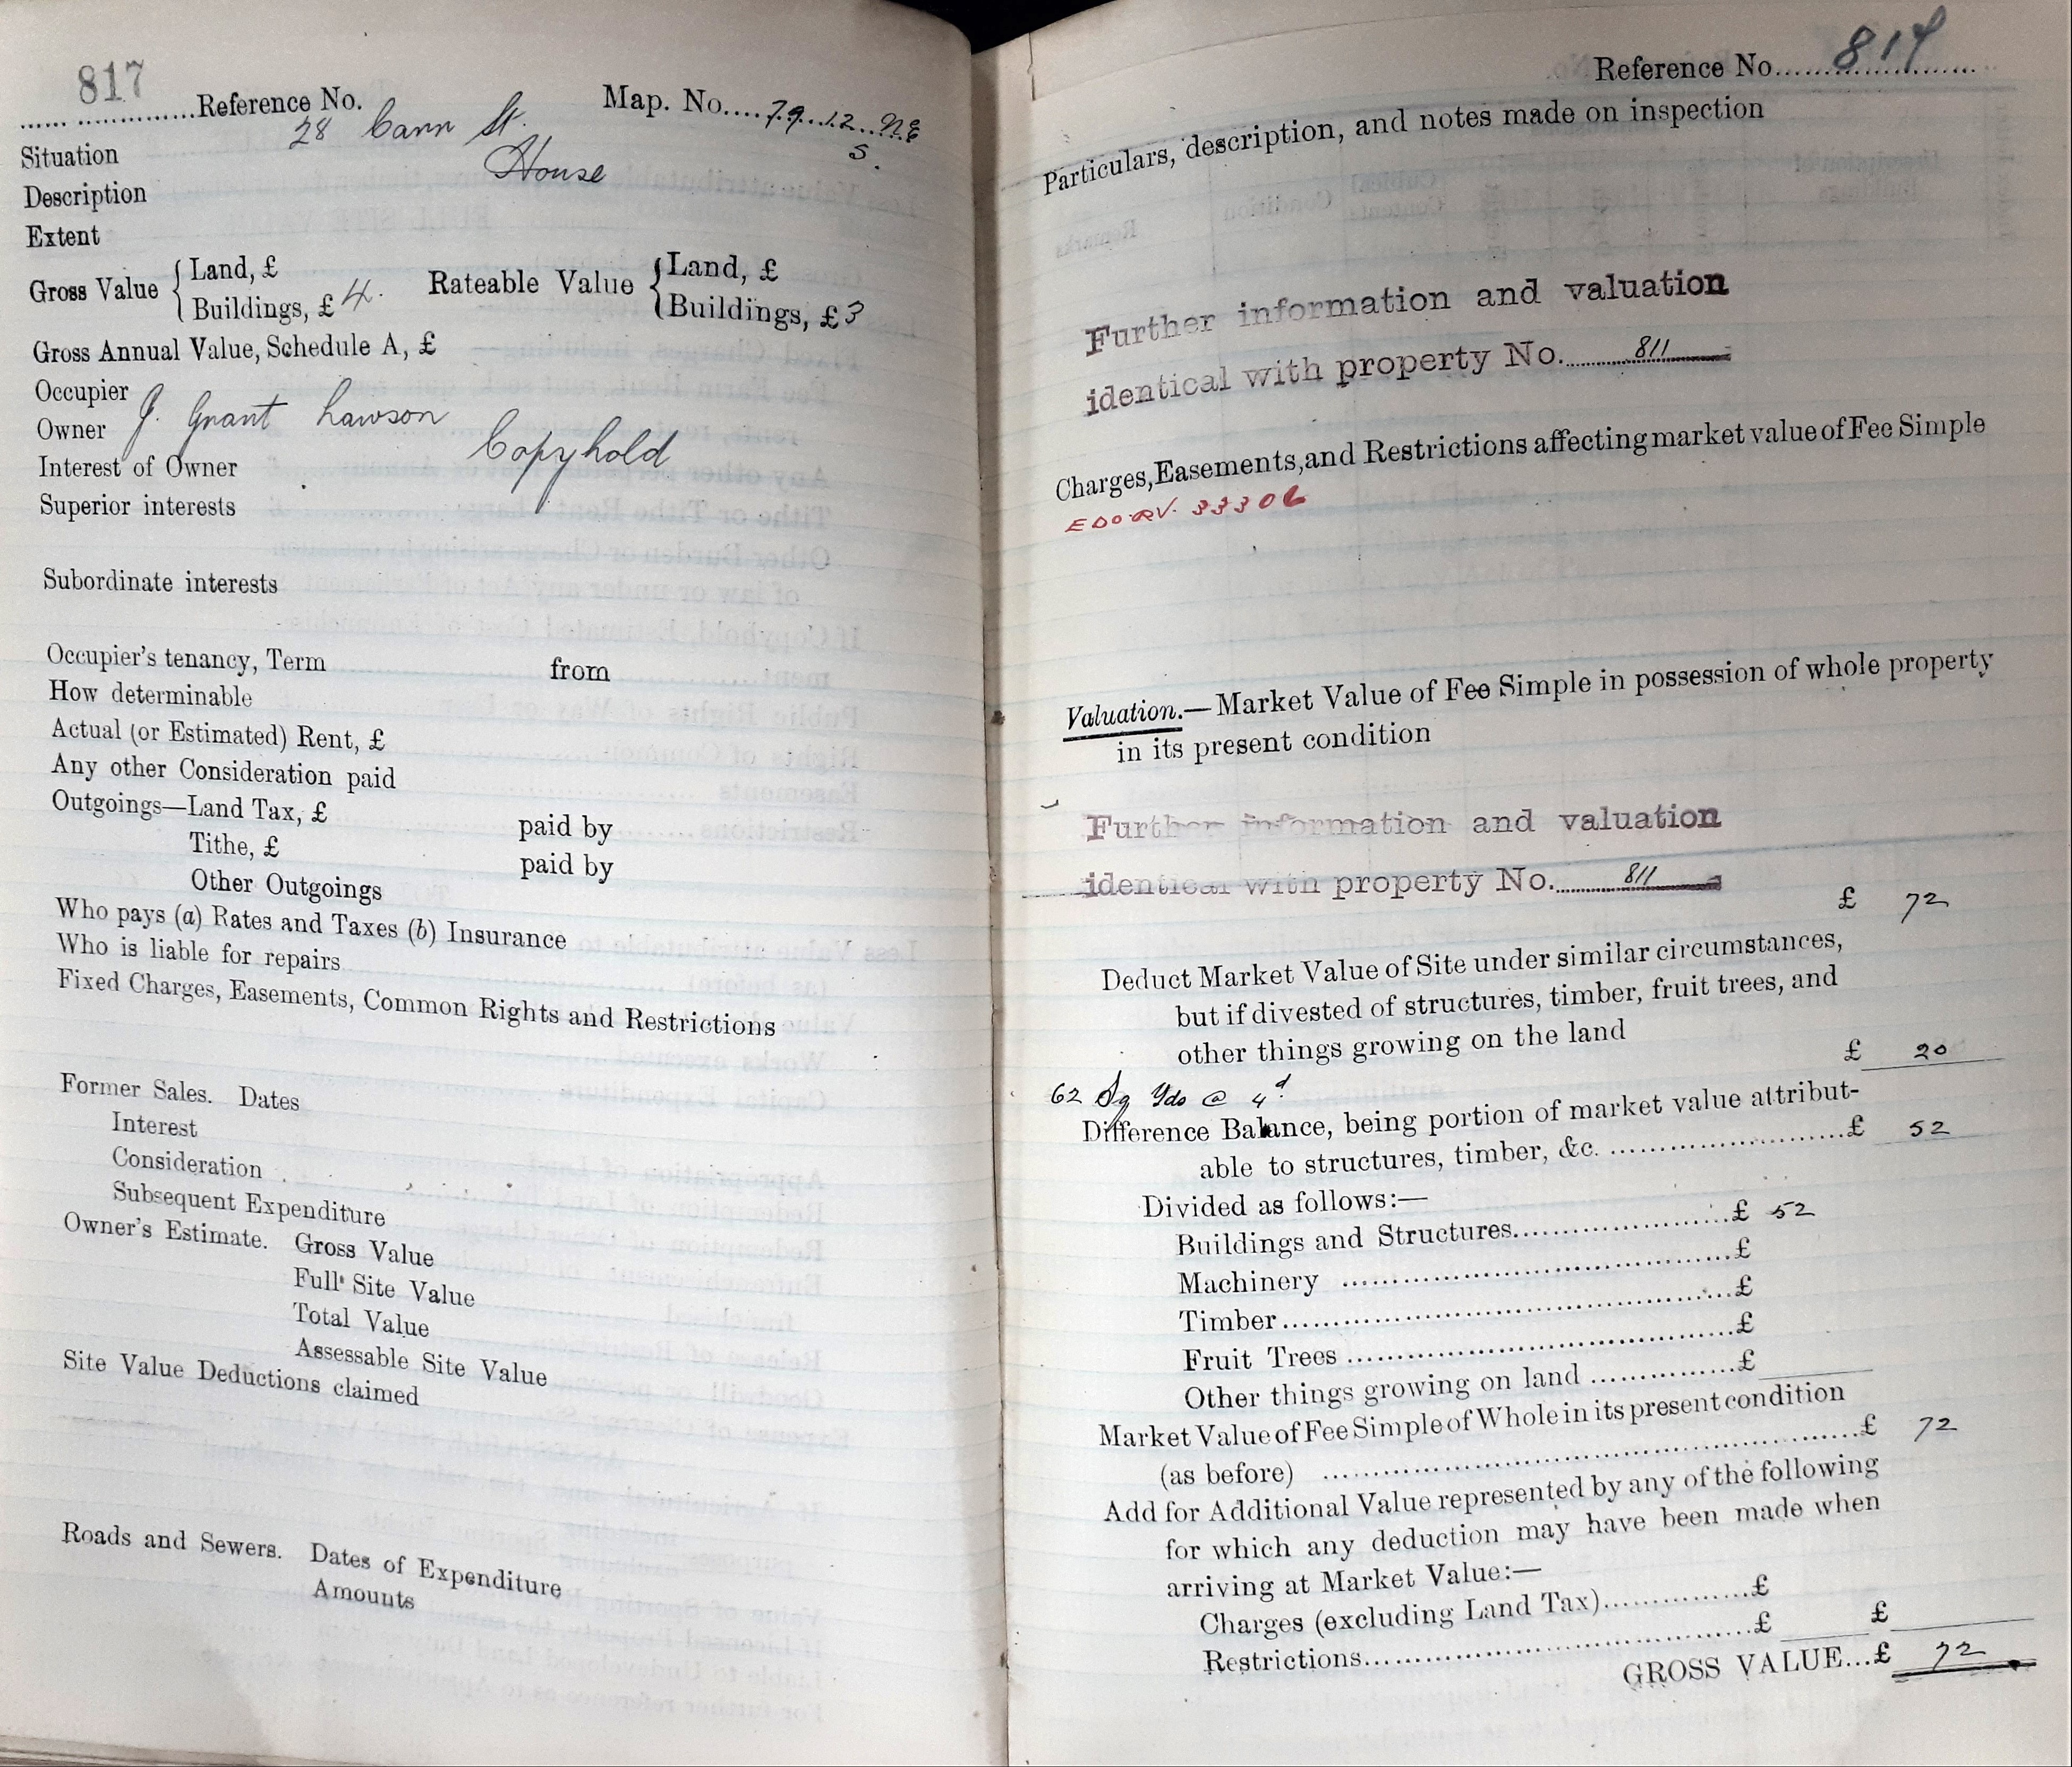 817
Reference No. Map. No. 79.12. NE
S.
Situation 28 Cann St.
Description House
Extent
Gross Value { Land, £ Rateable Value { Land, £
Buildings, £ 4. Buildings, £ 3
Gross Annual Value, Schedule A, £
Occupier
Owner J. Grant Lawson
Interest of Owner Copyhold
Superior interests
Subordinate interests
Occupier's tenancy, Term from
How determinable
Actual (or Estimated) Rent, £
Any other Consideration paid
Outgoings—Land Tax, £ paid by
Tithe, £ paid by
Other Outgoings
Who pays (a) Rates and Taxes (b) Insurance
Who is liable for repairs
Fixed Charges, Easements, Common Rights and Restrictions
Former Sales. Dates
Interest
Consideration
Subsequent Expenditure
Owner's Estimate. Gross Value
Full Site Value
Total Value
Assessable Site Value
Site Value Deductions claimed
Roads and Sewers. Dates of Expenditure
Amounts
Reference No. 817
Particulars, description, and notes made on inspection
Further information and valuation
identical with property No. 811
Charges, Easements, and Restrictions affecting market value of Fee Simple
33306
Valuation.—Market Value of Fee Simple in possession of whole property
in its present condition
Further information and valuation
identical with property No. 811
£ 72
Deduct Market Value of Site under similar circumstances,
but if divested of structures, timber, fruit trees, and
other things growing on the land
£ 20
62 Sq Yds @ 4d
Difference Balance, being portion of market value attribut-
able to structures, timber, &c. £ 52
Divided as follows:—
Buildings and Structures £ 52
Machinery £
Timber £
Fruit Trees £
Other things growing on land £
Market Value of Fee Simple of Whole in its present condition
(as before) £ 72
Add for Additional Value represented by any of the following
for which any deduction may have been made when
arriving at Market Value:—
Charges (excluding Land Tax) £
Restrictions £ £
GROSS VALUE...£ 72